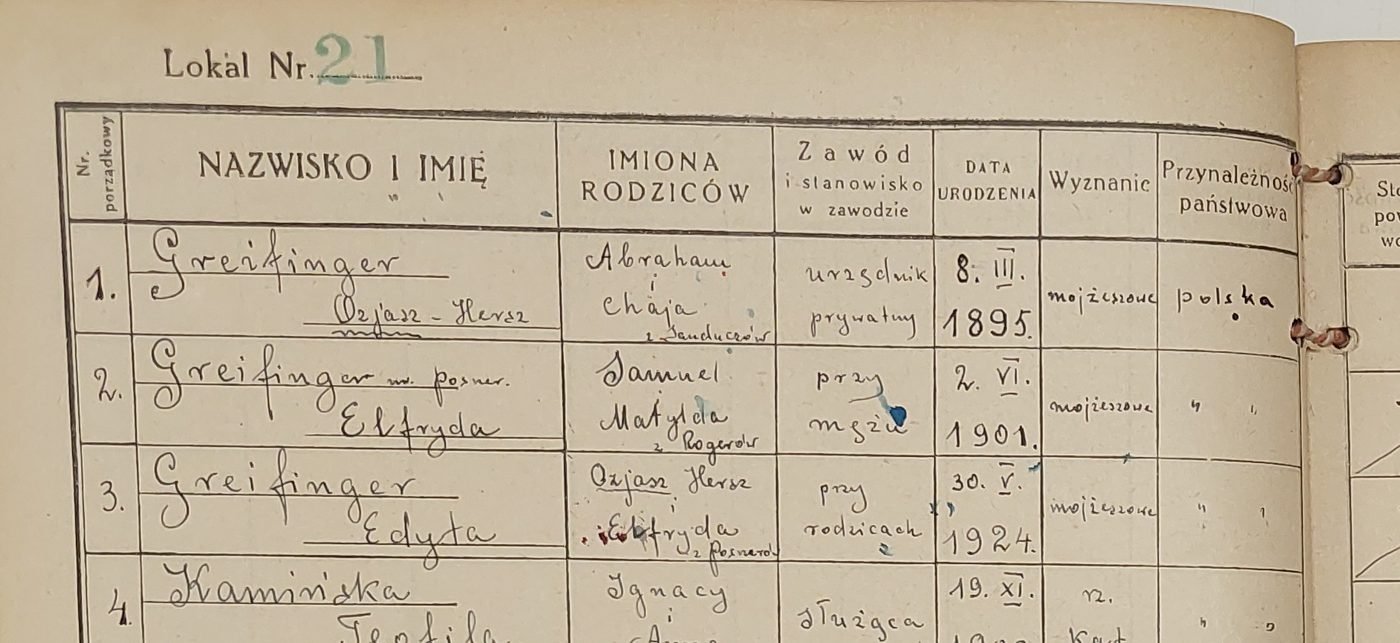 Lokal Nr. 21
Nr. porządkowy
NAZWISKO I IMIĘ
IMIONA RODZICÓW
Zawód i stanowisko w zawodzie
DATA URODZENIA
Wyznanie
Przynależność państwowa
1.
Greifinger
Ozjasz - Hersz
Abraham
i
Chaja
z Sanduczów
urzędnik
prywatny
8. III.
1895.
mojżeszowe
polska
2.
Greifinger ur. Posner.
Elfryda
Samuel
Matylda
z Rogerów
przy
mężu
2. VI.
1901.
mojżeszowe
" "
3.
Greifinger
Edyta
Ozjasz Hersz
i Elfryda
z Posnerów
przy
rodzicach
30. V.
1924.
mojżeszowe
" "
4.
Kamińska
Teofila
Ignacy
i
służąca
19. XI.
rz.
" "